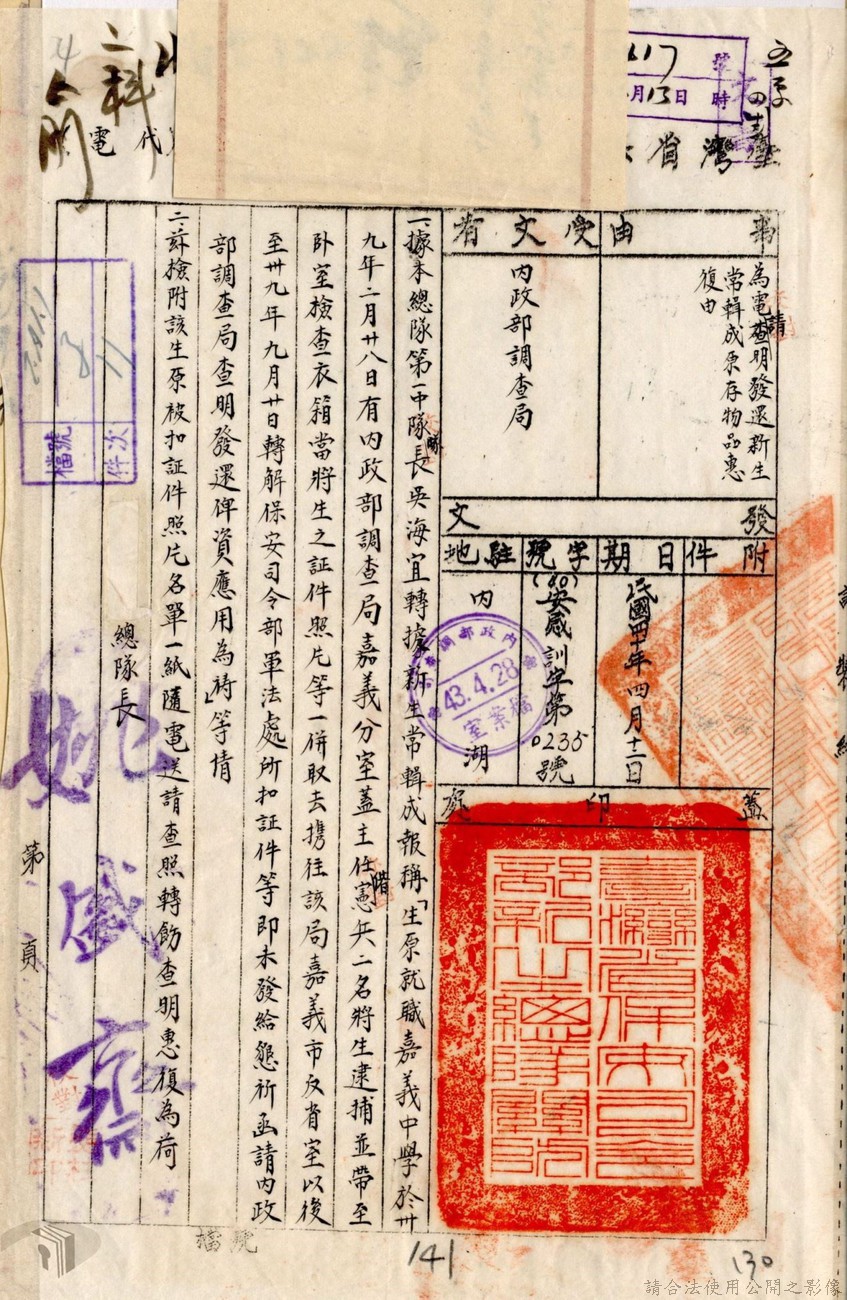 二科
17 號
月13日 時
灣省
代電
事由
為電請查明發還新生
常輯成原存物品惠
復由
受文者
內政部調查局
發文
附件
日期
民國四十年四月十二日
字號
(40)安感訓字第
0235
號
駐地
內
湖
內政部調查局
43.4.28
檔案室
蓋印處
一、據本總隊第一中隊隊長吳海宜轉據新生常輯成報稱「生原就職嘉義中學於卅
九年二月廿八日有內政部調查局嘉義分室蓋主任偕憲兵二名將生逮捕並帶至
卧室檢查衣箱當將生之証件照片等一併取去携往該局嘉義市反省室以後
至卅九年九月廿日轉解保安司令部軍法處所扣証件等即未發給懇祈函請內政
部調查局查明發還俾資應用為禱」等情
二、茲檢附該生原被扣証件照片名單一紙隨電送請查照轉飭查明惠復為荷
總隊長
姚盛齋
件次
11
檔號
第 頁
檔號
141
130
請合法使用公開之影像